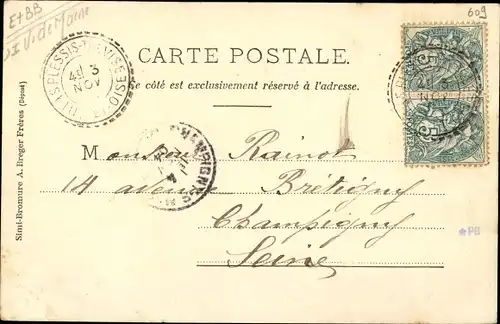 E+BB
V. de Marne
609
CARTE POSTALE.
Ce côté est exclusivement réservé à l'adresse.
PLESSIS-TRÉVISE
3
NOV
S. ET OISE
CHAMPIGNY-S
4
Monsieur Rainot
14 avenue Brétigny
Champigny
Seine
Simi-Bromure A. Breger Frères (Déposé)
PB